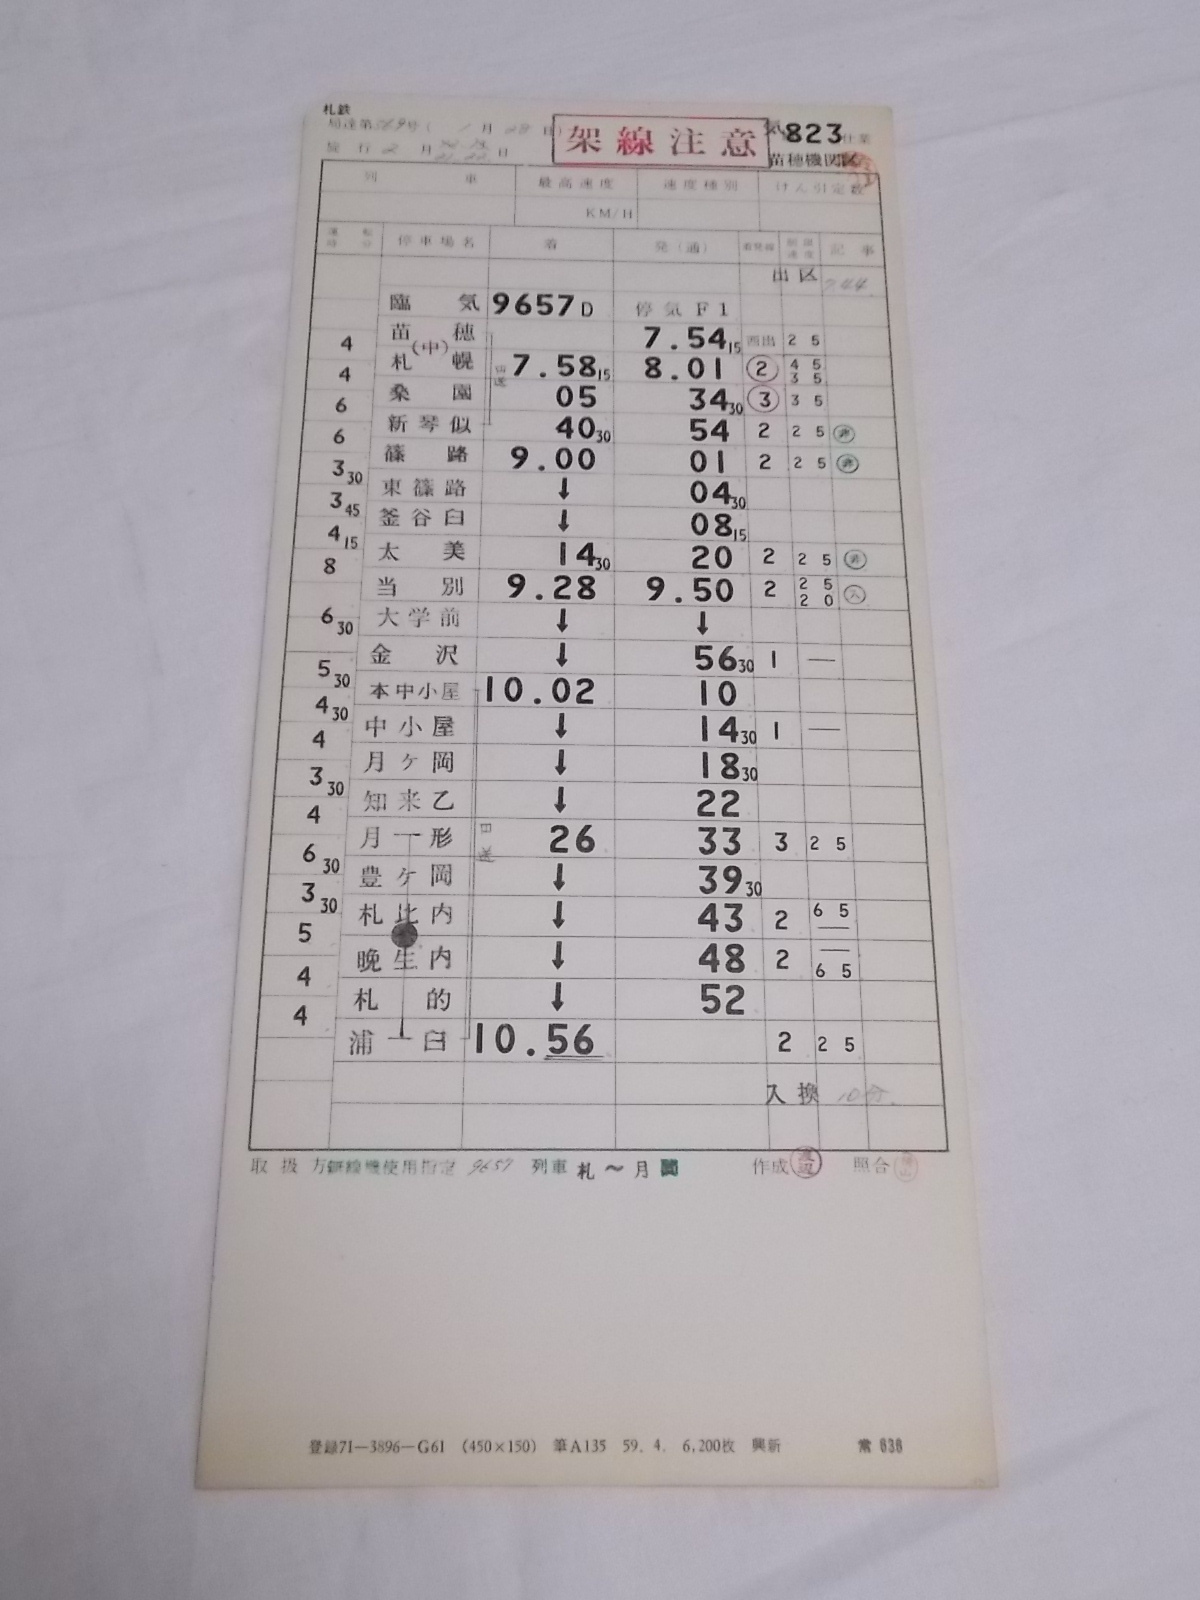 札鉄
局達第 号( 月 日)
架線注意
気823仕業
施行2月 日
苗穂機関区
列車 最高速度 速度種別 けん引定数
KM/H
運転時分 停車場名 着 発(通) 着発線 制限速度 記事
出区 7.44
臨気 9657D 停気F1
苗穂 7.54 15 西出 25
4
(中)
札幌 7.58 15 8.01 ② 45 35
回送
4
桑園 05 34 30 ③ 35
6
新琴似 40 30 54 2 25
6
篠路 9.00 01 2 25
3 30
東篠路 ↓ 04 30
3 45
釜谷臼 ↓ 08 15
4 15
太美 14 30 20 2 25
8
当別 9.28 9.50 2 25 20 入
大学前 ↓ ↓
6 30
金沢 ↓ 56 30 1 —
5 30
本中小屋 10.02 10
4 30
中小屋 ↓ 14 30 1 —
4
月ヶ岡 ↓ 18 30
3 30
知来乙 ↓ 22
4
月形 26 33 3 25
回送
6 30
豊ヶ岡 ↓ 39 30
3 30
札比内 ↓ 43 2 65 —
5
晩生内 ↓ 48 2 — 65
4
札的 ↓ 52
4
浦臼 10.56 2 25
入換 10分
取扱方 線機使用指定 9657 列車 札〜月 作成 渡辺 照合
登録71—3896—G61 (450×150) 筆A135 59. 4. 6,200枚 興新 常 636